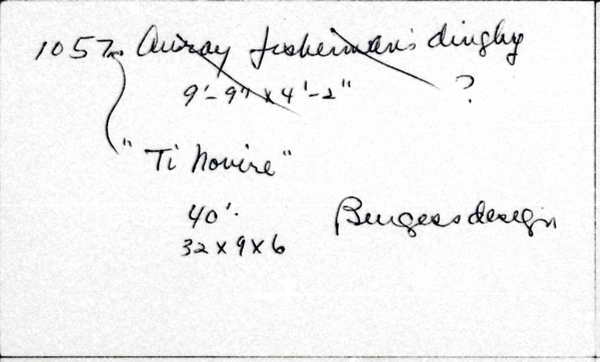 1057. Auray fisherman's dinghy
9'-9" x 4'-2" ?
"Ti Novire"
40'.
Burgess design
32 x 9 x 6